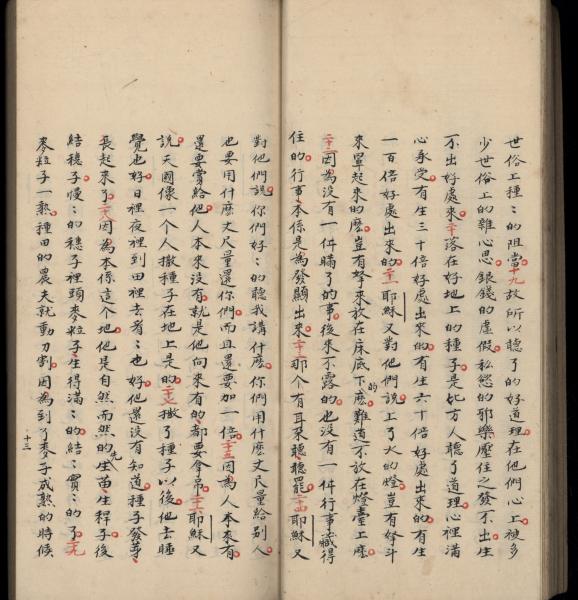 世俗上種〻的阻當十九故所以聽了的好道理在他們心上被多
少世俗上的雜心思銀錢的虛假私慾的邪樂壓住之發不出生
不出好處來二十落在好地上的種子是比方人聽了道理心裡滿
心承受有生三十倍好處出來的有生六十倍好處出來的有生
一百倍好處出來的二十一耶穌又對他們說上了火的燈豈有拏斗
來罩起來的麽豈有拏來放在床底下的麽難道不放在燈臺上麽
二十二因為沒有一件瞞了的事後來不露的也沒有一件行事藏得
住的行事本係是為發顯出來二十三那个有耳朶聽聽罷二十四耶穌又
對他們說你們好〻的聽我講什麽你們用什麽丈尺量給别人
也要用什麽丈尺量還你們而且還要加一倍二十五因為人本來有
還要賞給他人本來沒有就是他向來有的都要拿吊二十六耶穌又
說天國像一个人撒種子在地上是的二十七撒了種子以後他去睡
覺也好日裡夜裡到田裡去看〻也好他還沒有知道種子發芽
長起來了二十八因為本係這个地他是自然而然的先生苗生稈子後
結穗子慢〻的穗子裡頭麥粒子生得滿〻的結〻實〻的了二十九
麥粒子一熟種田的農夫就動刀割因為到了麥子成熟的時候
十三